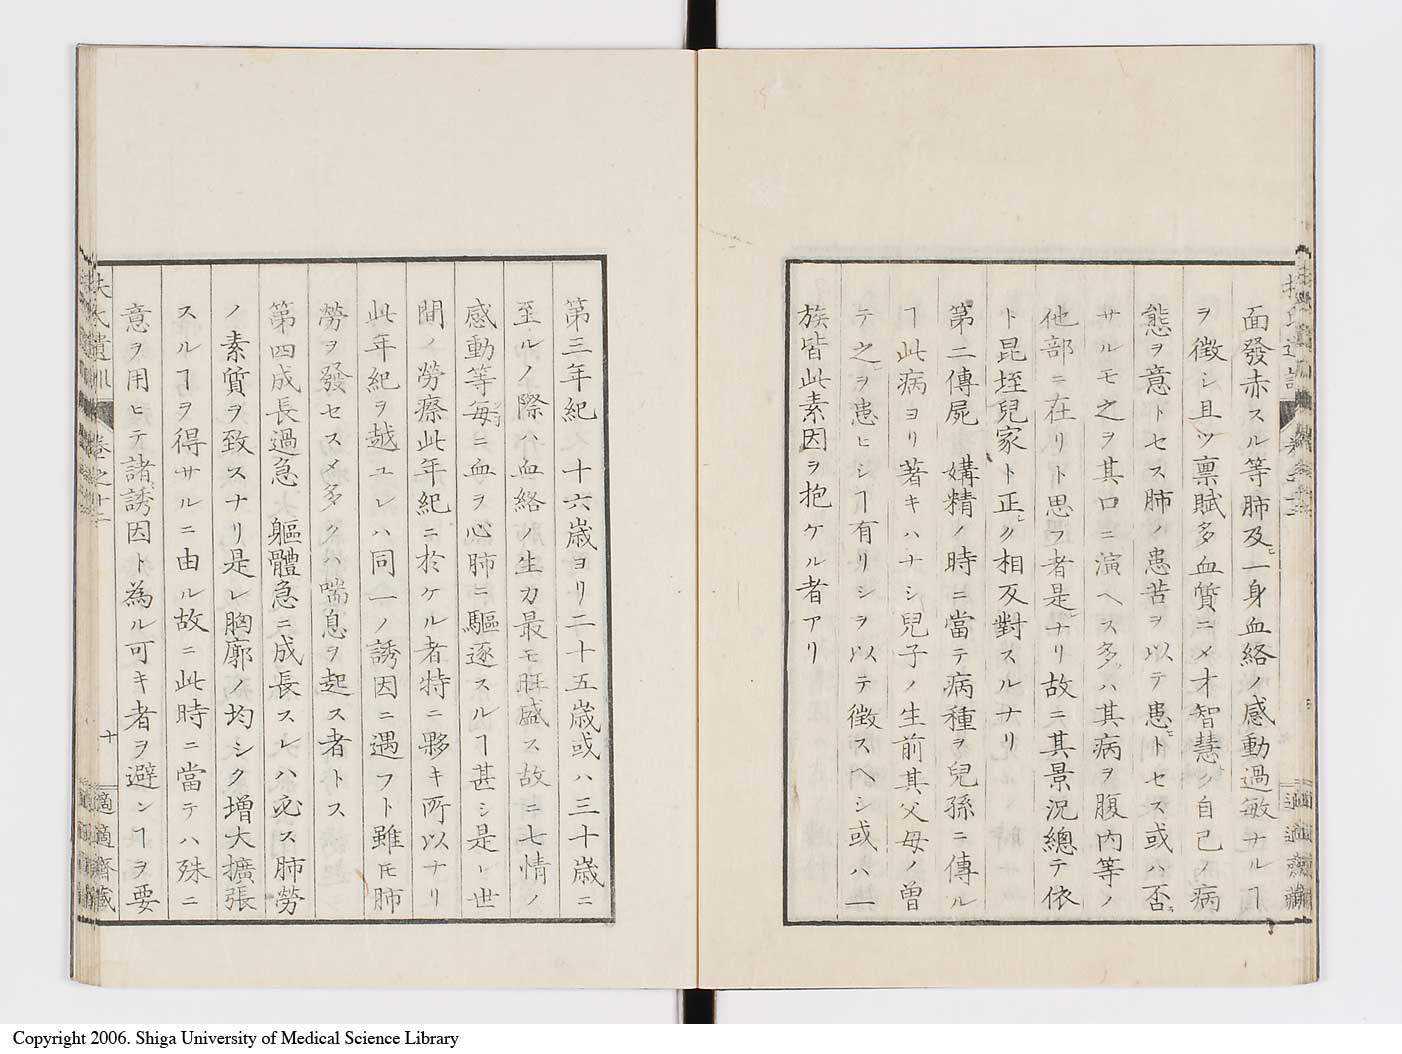 面發赤スル等肺及ヒ一身血絡ノ感動過敏ナルヿ
ヲ徴シ且ツ禀賦多血質ニメ才智慧ク自己ノ病
態ヲ意トセス肺ノ患苦ヲ以テ患ヒトセス或ハ否ラ
サルモ之ヲ其口ニ演ヘス多ハ其病ヲ腹内等ノ
他部ニ在リト思フ者是ナリ故ニ其景況總テ依
ト昆垤兒家ト正シク相反對スルナリ
第二傳屍 媾精ノ時ニ當テ病種ヲ兒孫ニ傳ル
ヿ此病ヨリ著キハナシ兒子ノ生前其父母ノ曽
テ之ヲ患ヒシヿ有リシヲ以テ徴スヘシ或ハ一
族皆此素因ヲ抱ケル者アリ
第三年紀 十六歳ヨリ二十五歳或ハ三十歳ニ
至ルノ際ハ血絡ノ生力最モ旺盛ス故ニ七情ノ
感動等毎ニ血ヲ心肺ニ驅逐スルヿ甚シ是レ世
間ノ勞瘵此年紀ニ於ケル者特ニ夥キ所以ナリ
此年紀ヲ越ユレハ同一ノ誘因ニ遇フト雖モ肺
勞ヲ發セスメ多クハ喘息ヲ起ス者トス
第四成長過急 軀體急ニ成長スレハ必ス肺勞
ノ素質ヲ致スナリ是レ胸廓ノ均シク增大擴張
スルヿヲ得サルニ由ル故ニ此時ニ當テハ殊ニ
意ヲ用ヒテ諸誘因ト為ル可キ者ヲ避ンヿヲ要
扶氏遺訓 卷之十二 十 適適齋藏
Copyright 2006. Shiga University of Medical Science Library